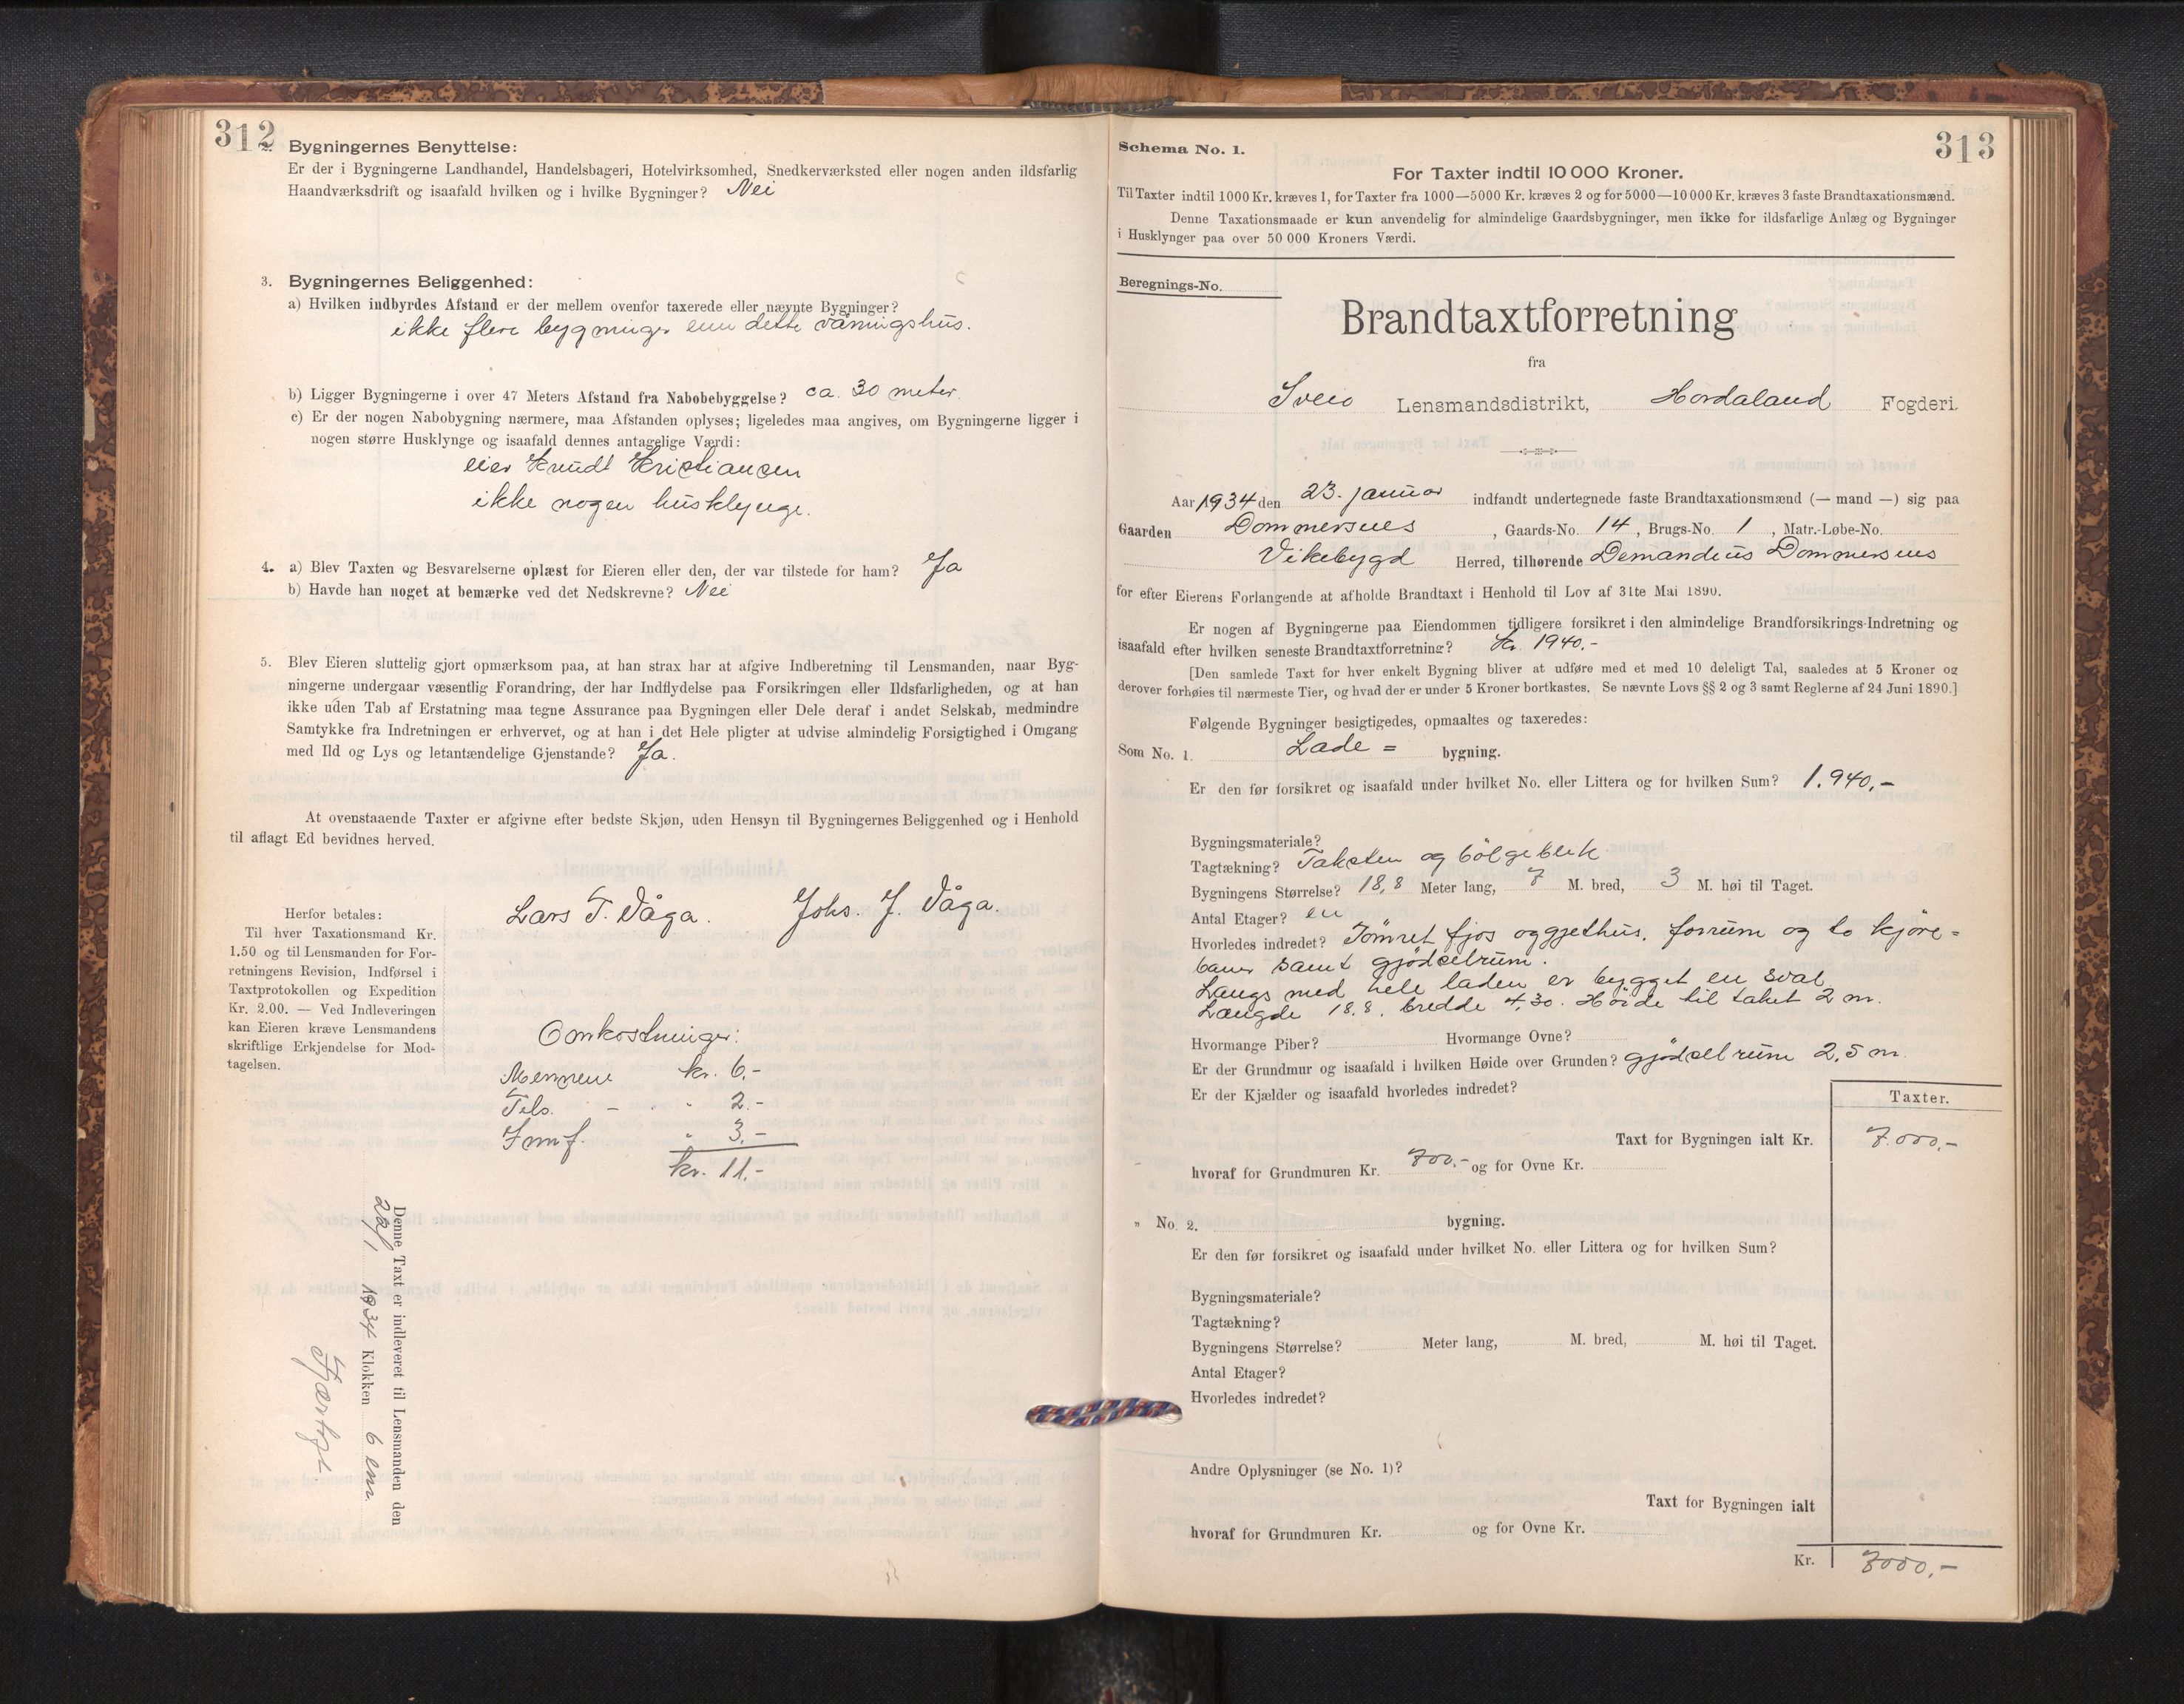 312
2. Bygningernes Benyttelse:
Er der i Bygningerne Landhandel, Handelsbageri, Hotelvirksomhed, Snedkerværksted eller nogen anden ildsfarlig
Haandværksdrift og isaafald hvilken og i hvilke Bygninger? Nei
3. Bygningernes Beliggenhed:
a) Hvilken indbyrdes Afstand er der mellem ovenfor taxerede eller nævnte Bygninger?
ikke flere bygninger enn dette våningshus.
b) Ligger Bygningerne i over 47 Meters Afstand fra Nabobebyggelse? ca. 30 meter.
c) Er der nogen Nabobygning nærmere, maa Afstanden oplyses; ligeledes maa angives, om Bygningerne ligger i
nogen større Husklynge og isaafald dennes antagelige Værdi:
eier Knudt Kristiansen
ikke nogen husklynge.
4. a) Blev Taxten og Besvarelserne oplæst for Eieren eller den, der var tilstede for ham? Ja
b) Havde han noget at bemærke ved det Nedskrevne? Nei
5. Blev Eieren sluttelig gjort opmærksom paa, at han strax har at afgive Indberetning til Lensmanden, naar Byg-
ningerne undergaar væsentlig Forandring, der har Indflydelse paa Forsikringen eller Ildsfarligheden, og at han
ikke uden Tab af Erstatning maa tegne Assurance paa Bygningen eller Dele deraf i andet Selskab, medmindre
Samtykke fra Indretningen er erhvervet, og at han i det Hele pligter at udvise almindelig Forsigtighed i Omgang
med Ild og Lys og letantændelige Gjenstande? Ja.
At ovenstaaende Taxter er afgivne efter bedste Skjøn, uden Hensyn til Bygningernes Beliggenhed og i Henhold
til aflagt Ed bevidnes herved.
Lars T. Våga. Johs. J. Våga.
Herfor betales:
Til hver Taxationsmand Kr.
1.50 og til Lensmanden for For-
retningens Revision, Indførsel i
Taxtprotokollen og Expedition
Kr. 2.00. — Ved Indleveringen
kan Eieren kræve Lensmandens
skriftlige Erkjendelse for Mod-
tagelsen.
Omkostninger:
Mennene kr. 6.-
Tils. - " 2.-
Innf. " 3.-
kr. 11.-
Denne Taxt er indleveret til Lensmanden den
1934 Klokken 6 em.
313
Schema No. 1.
For Taxter indtil 10 000 Kroner.
Til Taxter indtil 1000 Kr. kræves 1, for Taxter fra 1000—5000 Kr. kræves 2 og for 5000—10 000 Kr. kræves 3 faste Brandtaxationsmænd.
Denne Taxationsmaade er kun anvendelig for almindelige Gaardsbygninger, men ikke for ildsfarlige Anlæg og Bygninger
i Husklynger paa over 50 000 Kroners Værdi.
Beregnings-No.
Brandtaxtforretning
fra
Sveio Lensmandsdistrikt, Hordaland Fogderi.
Aar 1934 den 23. januar indfandt undertegnede faste Brandtaxationsmænd (— mand —) sig paa
Gaarden Dommersnes, Gaards-No. 14, Brugs-No. 1, Matr.-Løbe-No.
Vikebygd Herred, tilhørende Demandius Dommersnes
for efter Eierens Forlangende at afholde Brandtaxt i Henhold til Lov af 31te Mai 1890.
Er nogen af Bygningerne paa Eiendommen tidligere forsikret i den almindelige Brandforsikrings-Indretning og
isaafald efter hvilken seneste Brandtaxtforretning? kr. 1940.-
[Den samlede Taxt for hver enkelt Bygning bliver at udføre med et med 10 deleligt Tal, saaledes at 5 Kroner og
derover forhøies til nærmeste Tier, og hvad der er under 5 Kroner bortkastes. Se nævnte Lovs §§ 2 og 3 samt Reglerne af 24 Juni 1890.]
Følgende Bygninger besigtigedes, opmaaltes og taxeredes:
Som No. 1. Lade = bygning.
Er den før forsikret og isaafald under hvilket No. eller Littera og for hvilken Sum? 1.940,-
Bygningsmateriale?
Tagtækning? Taksten og bölgeblek
Bygningens Størrelse? 18,8 Meter lang, 7 M. bred, 3 M. høi til Taget.
Antal Etager? en
Hvorledes indredet? Tömret fjos og gjethus. forrum og to kjöre=
baner samt gjödselrum.
Langs med hele laden er bygget en sval
Længde 18.8. bredde 4,30. Höide til taket 2 m.
Hvormange Piber? Hvormange Ovne?
Er der Grundmur og isaafald i hvilken Høide over Grunden? gjödselrum 2,5 m.
Er der Kjælder og isaafald hvorledes indredet?
Taxter.
Taxt for Bygningen ialt Kr. 7.000,-
hvoraf for Grundmuren Kr. 700.- og for Ovne Kr.
„ No. 2. bygning.
Er den før forsikret og isaafald under hvilket No. eller Littera og for hvilken Sum?
Bygningsmateriale?
Tagtækning?
Bygningens Størrelse? Meter lang, M. bred, M. høi til Taget.
Antal Etager?
Hvorledes indredet?
Andre Oplysninger (se No. 1)?
Taxt for Bygningen ialt
hvoraf for Grundmuren Kr. og for Ovne Kr.
Kr. 7000,-